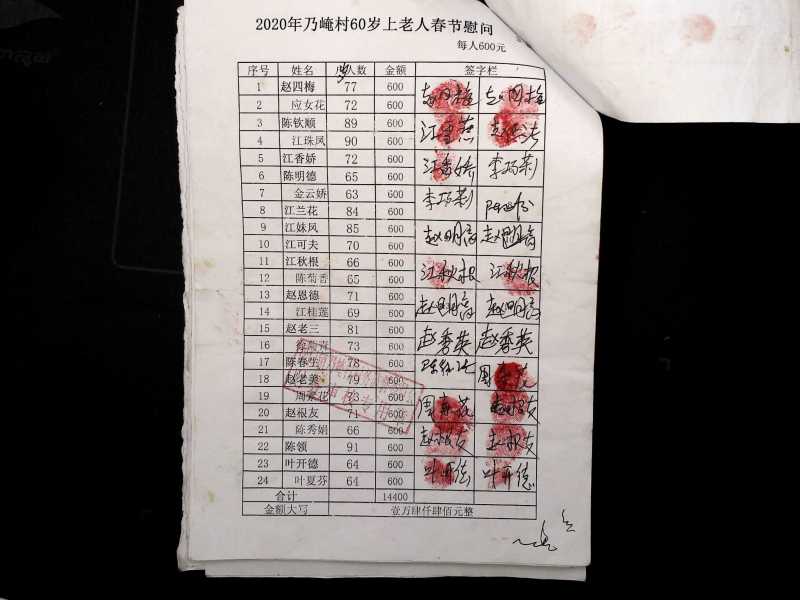 2020年乃崦村60岁上老人春节慰问
每人600元
序号 姓名 人数 金额 签字栏
1 赵四梅 77 600
2 应女花 72 600
3 陈钦顺 89 600
4 江珠凤 90 600
5 江香娇 72 600 江香娇 李巧菊
6 陈明德 65 600
7 金云娇 63 600 李巧菊
8 江兰花 84 600
9 江妹凤 85 600 赵明高 赵明高
10 江可夫 70 600
11 江秋根 66 600 江秋根 江秋根
12 陈菊香 65 600
13 赵恩德 71 600 赵明高 赵明高
14 江桂莲 69 600
15 赵老三 81 600 赵秀英 赵秀英
16 73 600
17 陈春生 78 600
18 赵老美 79 600
19 周素花 73 600
20 赵根友 71 600 赵根友
21 陈秀娟 66 600 赵根友 赵根友
22 陈领 91 600
23 叶开德 64 600 叶开德 叶开德
24 叶夏芬 64 600
合计 14400
金额大写 壹万肆仟肆佰元整